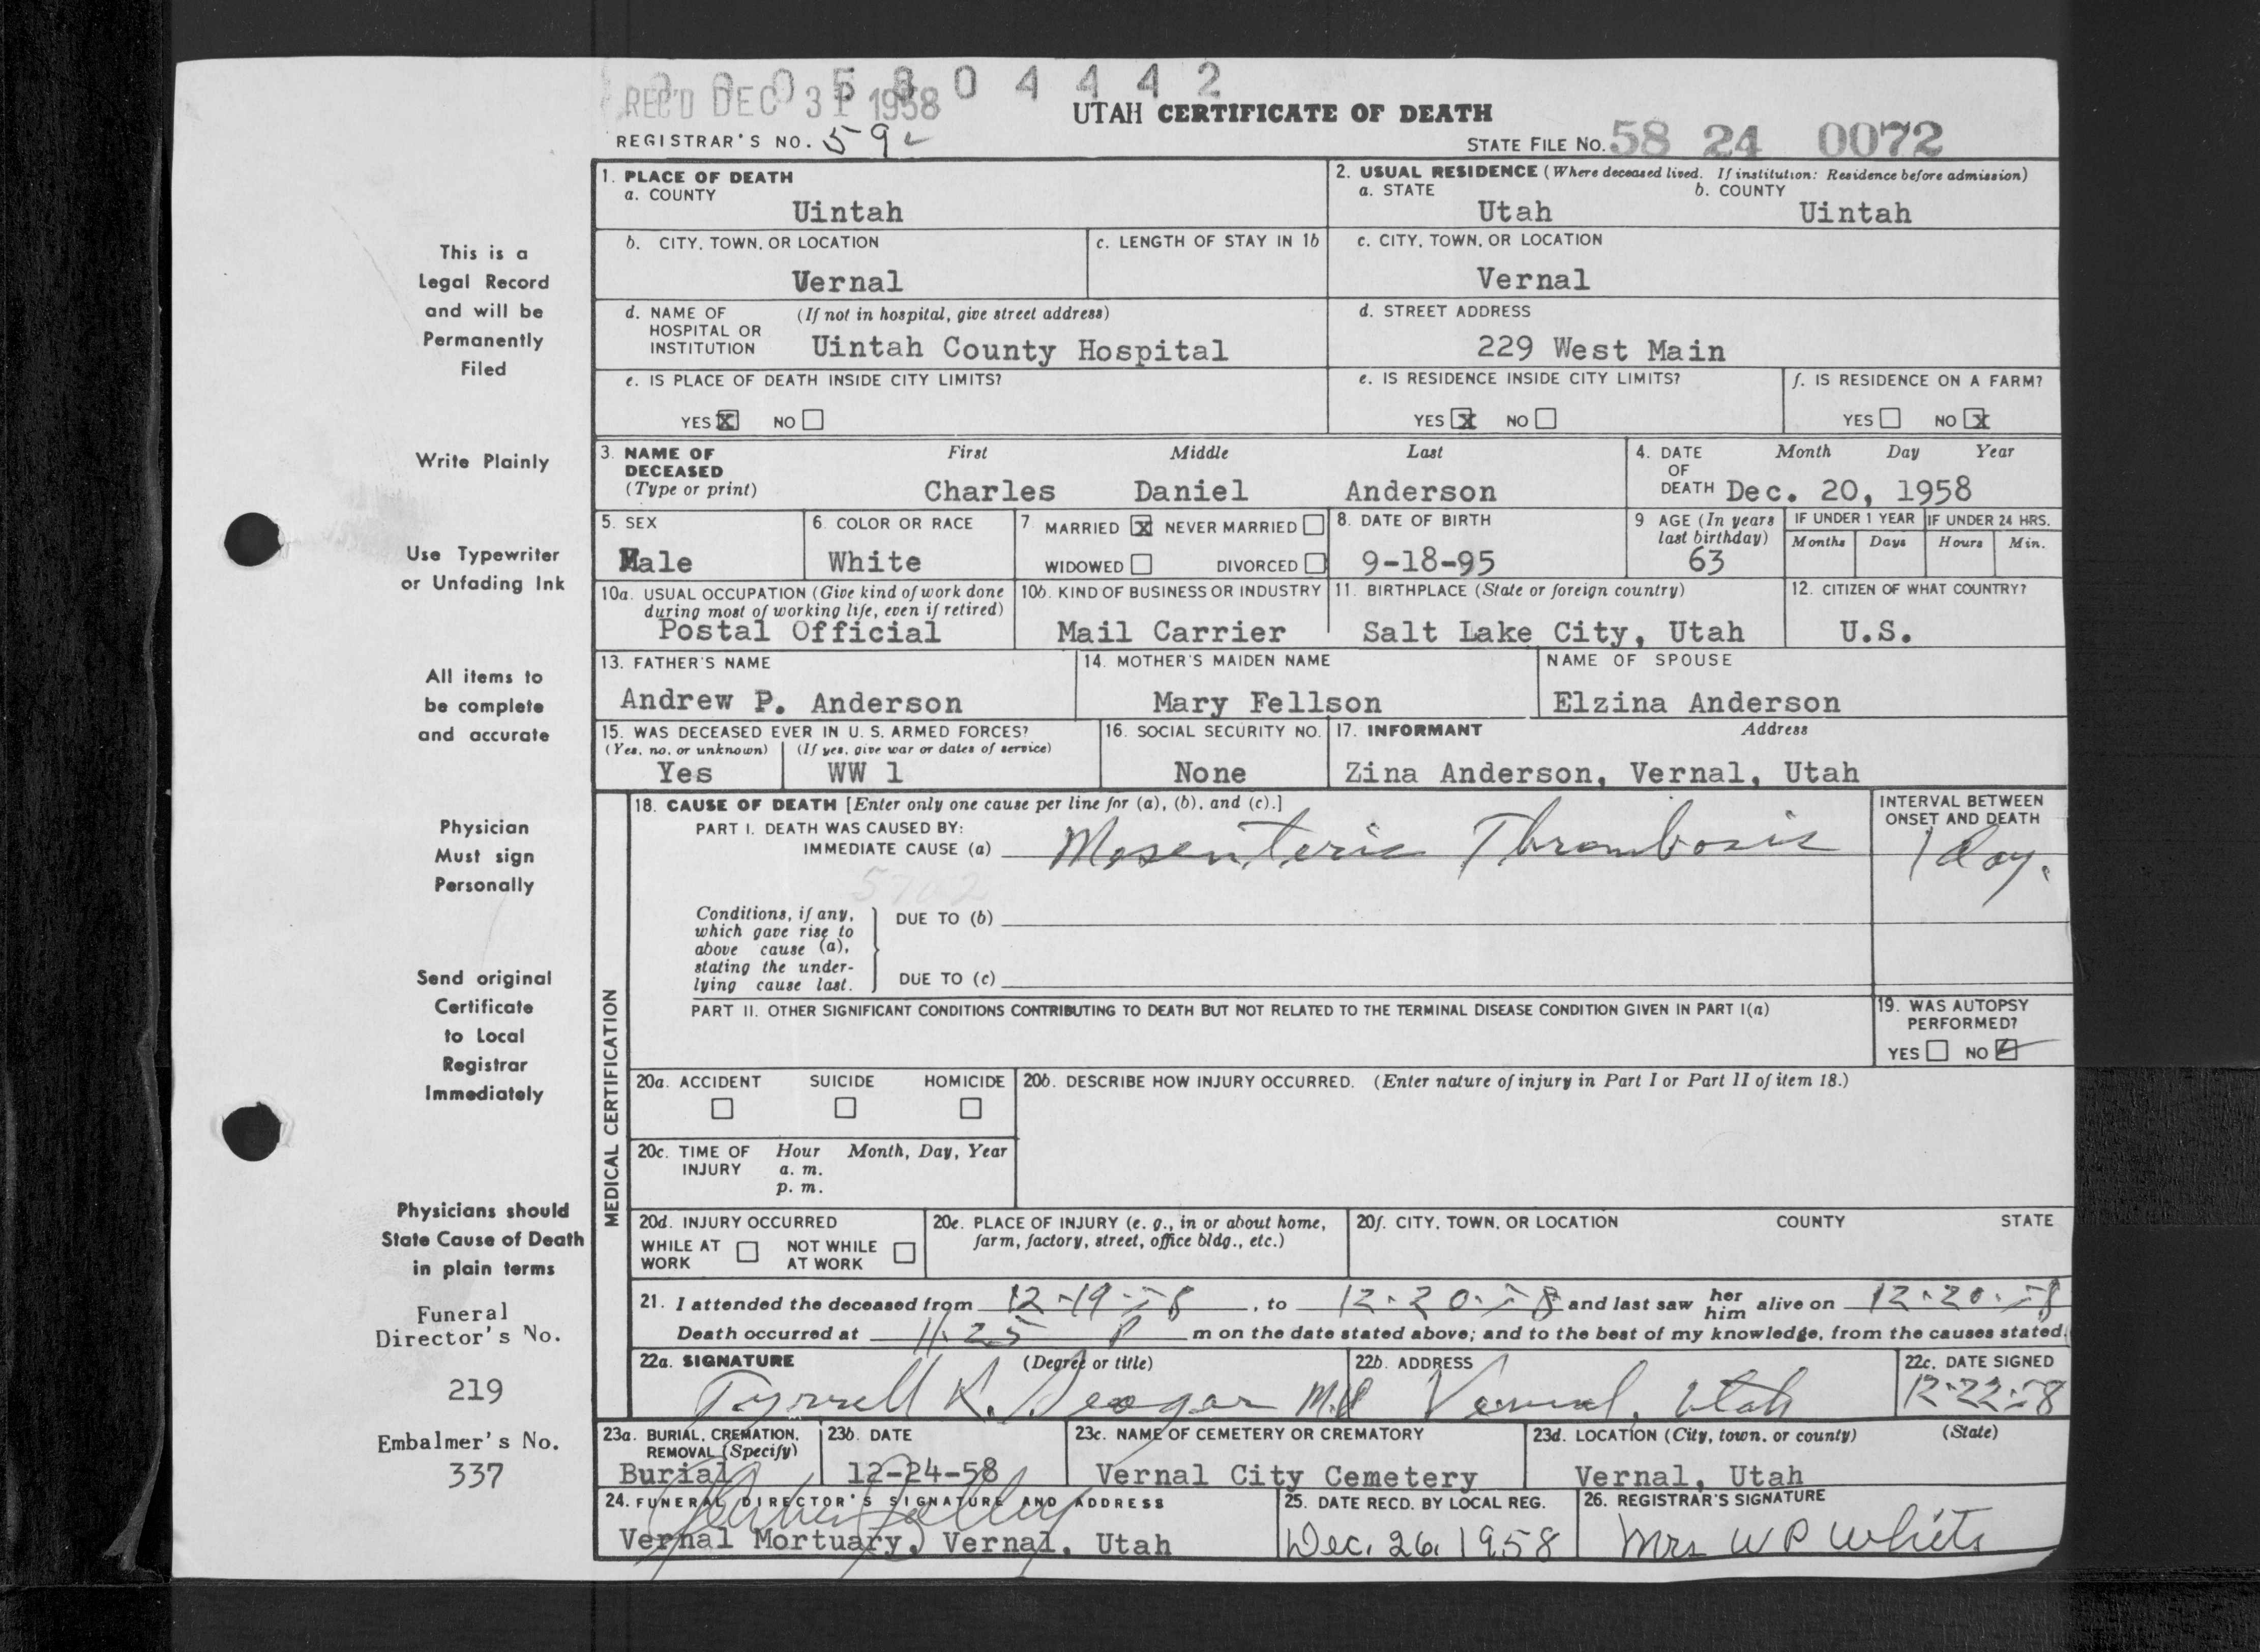 0 0 0 5 8 0 4 4 4 2
REC'D DEC 31 1958
UTAH CERTIFICATE OF DEATH
REGISTRAR'S NO. 59
STATE FILE No. 58 24 0072
This is a
Legal Record
and will be
Permanently
Filed
Write Plainly
Use Typewriter
or Unfading Ink
All items to
be complete
and accurate
Physician
Must sign
Personally
Send original
Certificate
to Local
Registrar
Immediately
Physicians should
State Cause of Death
in plain terms
Funeral
Director's No.
219
Embalmer's No.
337
1. PLACE OF DEATH
a. COUNTY
Uintah
2. USUAL RESIDENCE (Where deceased lived. If institution: Residence before admission)
a. STATE b. COUNTY
Utah Uintah
b. CITY, TOWN, OR LOCATION c. LENGTH OF STAY IN 1b
Vernal
c. CITY, TOWN, OR LOCATION
Vernal
d. NAME OF (If not in hospital, give street address)
HOSPITAL OR
INSTITUTION Uintah County Hospital
d. STREET ADDRESS
229 West Main
e. IS PLACE OF DEATH INSIDE CITY LIMITS?
YES X NO
e. IS RESIDENCE INSIDE CITY LIMITS? f. IS RESIDENCE ON A FARM?
YES X NO YES NO X
3. NAME OF First Middle Last
DECEASED
(Type or print) Charles Daniel Anderson
4. DATE Month Day Year
OF
DEATH Dec. 20, 1958
5. SEX
Male
6. COLOR OR RACE
White
7. MARRIED X NEVER MARRIED
WIDOWED DIVORCED
8. DATE OF BIRTH
9-18-95
9 AGE (In years
last birthday)
63
IF UNDER 1 YEAR IF UNDER 24 HRS.
Months Days Hours Min.
10a. USUAL OCCUPATION (Give kind of work done
during most of working life, even if retired)
Postal Official
10b. KIND OF BUSINESS OR INDUSTRY
Mail Carrier
11. BIRTHPLACE (State or foreign country)
Salt Lake City, Utah
12. CITIZEN OF WHAT COUNTRY?
U.S.
13. FATHER'S NAME
Andrew P. Anderson
14. MOTHER'S MAIDEN NAME
Mary Fellson
NAME OF SPOUSE
Elzina Anderson
15. WAS DECEASED EVER IN U. S. ARMED FORCES?
(Yes, no, or unknown) (If yes, give war or dates of service)
Yes WW 1
16. SOCIAL SECURITY NO.
None
17. INFORMANT Address
Zina Anderson, Vernal, Utah
MEDICAL CERTIFICATION
18. CAUSE OF DEATH [Enter only one cause per line for (a), (b), and (c).]
PART I. DEATH WAS CAUSED BY:
IMMEDIATE CAUSE (a) Mesenteric Thrombosis
INTERVAL BETWEEN
ONSET AND DEATH
1 day.
5702
Conditions, if any,
which gave rise to
above cause (a),
stating the under-
lying cause last.
DUE TO (b)
DUE TO (c)
PART II. OTHER SIGNIFICANT CONDITIONS CONTRIBUTING TO DEATH BUT NOT RELATED TO THE TERMINAL DISEASE CONDITION GIVEN IN PART I(a)
19. WAS AUTOPSY
PERFORMED?
YES NO ✓
20a. ACCIDENT SUICIDE HOMICIDE
20b. DESCRIBE HOW INJURY OCCURRED. (Enter nature of injury in Part I or Part II of item 18.)
20c. TIME OF Hour Month, Day, Year
INJURY a. m.
p. m.
20d. INJURY OCCURRED
WHILE AT NOT WHILE
WORK AT WORK
20e. PLACE OF INJURY (e. g., in or about home,
farm, factory, street, office bldg., etc.)
20f. CITY, TOWN, OR LOCATION COUNTY STATE
21. I attended the deceased from 12-19-58, to 12-20-58 and last saw her him alive on 12-20-58
Death occurred at 11:25 P m on the date stated above; and to the best of my knowledge, from the causes stated.
22a. SIGNATURE (Degree or title)
Tyrrell K. Seager M.D.
22b. ADDRESS
Vernal, Utah
22c. DATE SIGNED
12-22-58
23a. BURIAL, CREMATION,
REMOVAL (Specify)
Burial
23b. DATE
12-24-58
23c. NAME OF CEMETERY OR CREMATORY
Vernal City Cemetery
23d. LOCATION (City, town, or county) (State)
Vernal, Utah
24. FUNERAL DIRECTOR'S SIGNATURE AND ADDRESS
Vernal Mortuary, Vernal, Utah
25. DATE RECD. BY LOCAL REG.
Dec. 26, 1958
26. REGISTRAR'S SIGNATURE
Mrs W P White